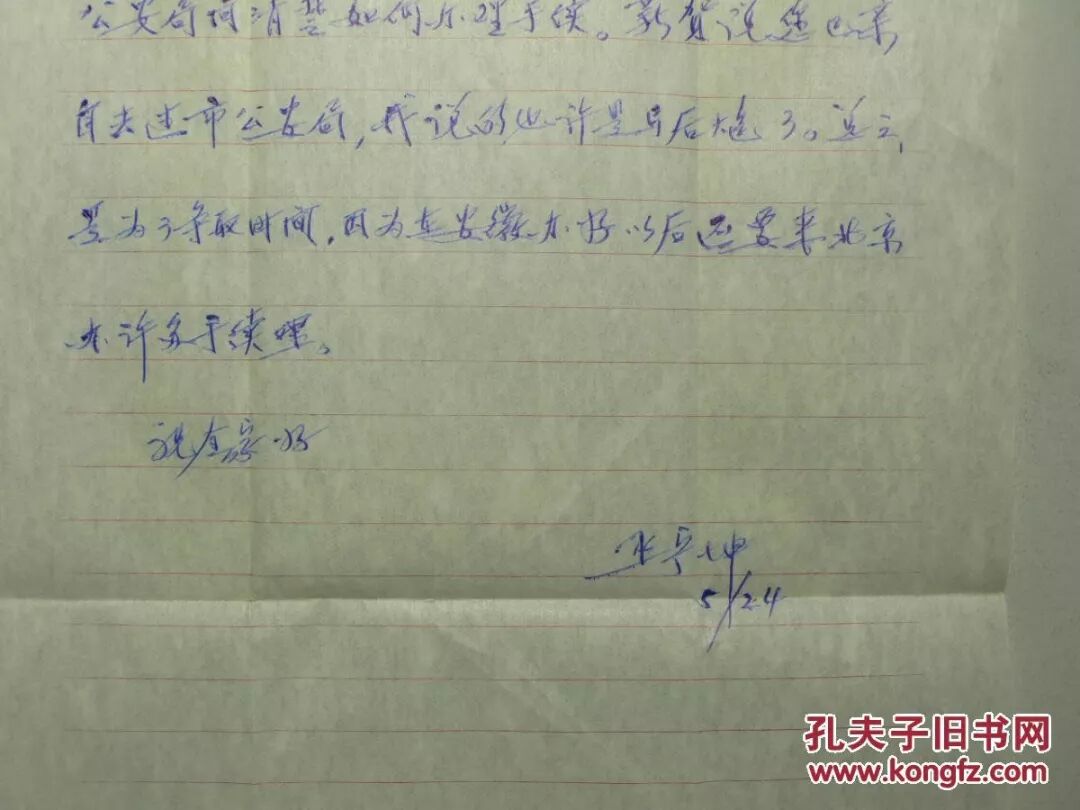 公安局问清楚如何办理手续。新贺说您已亲
自去过市公安局,我说的也许是马后炮了。这也
是为了争取时间,因为在安徽办好以后还要来北京
办许多手续呢。
祝全家好
张亨坤
5/24
孔夫子旧书网
www.kongfz.com